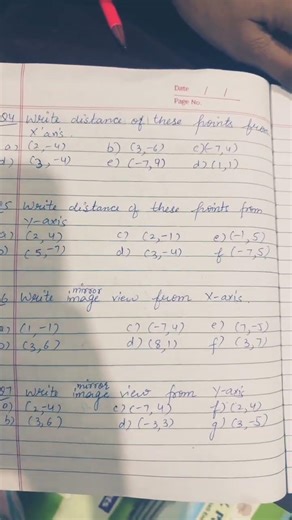 Date / /
Page No.
Q4 Write distance of these points from
X'axis.
a) (2,-4) b) (3,-6) c) (-7,4)
d) (3,-4) e) (-7,9) d) (1,1)
Write distance of these points from
Y-axis
a) (2,4) c) (2,-1) e) (-1,5)
b) (5,-7) d) (3,-4) f (-7,5)
Write mirror image view from X-axis.
a) (1,-1) c) (-7,4) e) (7,-5)
b) (3,6) d) (8,1) f) (3,7)
Q7 Write mirror image view from Y-axis
a) (2,-4) c) (-7,4) f) (2,4)
b) (3,6) d) (-3,3) g) (3,-5)